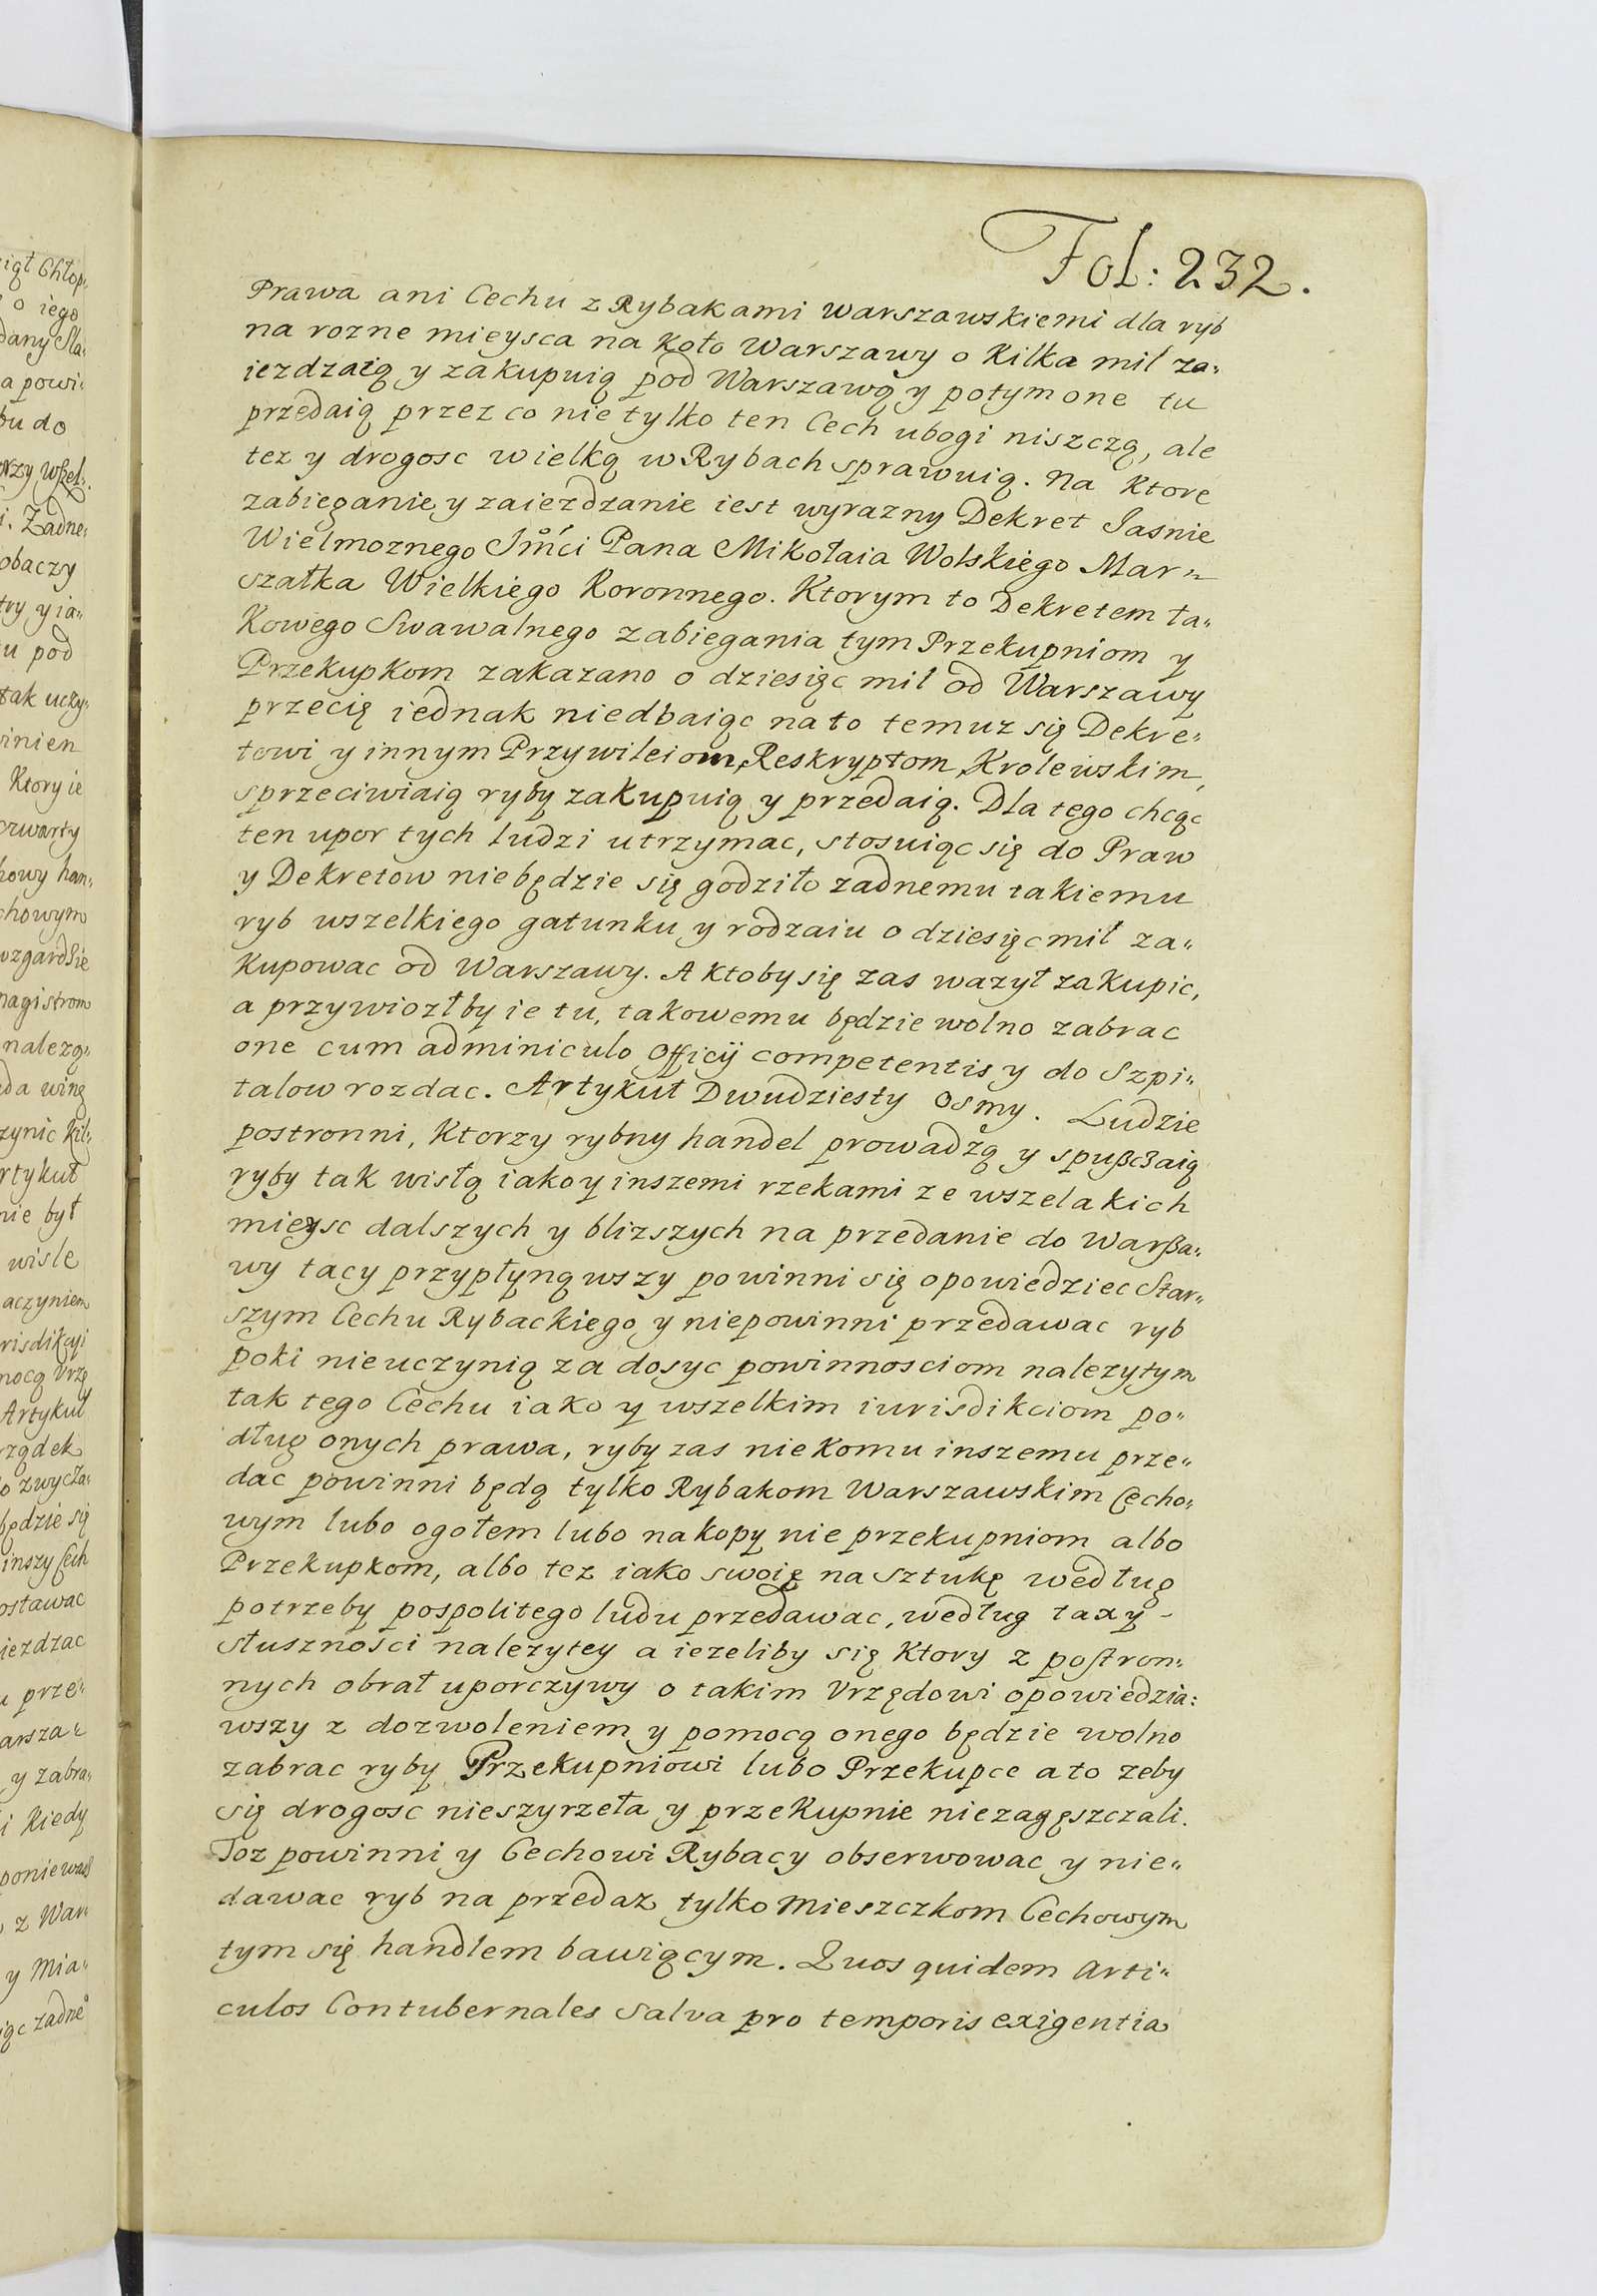 Fol: 232.
Prawa ani Cechu z Rybakami warszawskiemi dla ryb
na rozne mieysca na koło Warszawy o kilka mil za„
iezdzaią y zakupuią pod Warszawą y potym one tu
przedaią przez co nie tylko ten Cech ubogi niszczą, ale
tez y drogosc wielką w Rybach sprawuią. Na ktore
zabieganie y zaiezdzanie iest wyrazny Dekret Jasnie
Wielmoznego Jmći Pana Mikołaia Wolskiego Mar„
szałka Wielkiego Koronnego. Ktorym to Dekretem ta„
kowego Swawalnego zabiegania tym Przekupniom y
Przekupkom zakazano o dziesięc mil od Warszawy
przecię iednak niedbaiąc na to temuz się Dekre„
towi y innym Przywileiom, Reskryptom Krolewskim,
sprzeciwiaią ryby zakupuią y przedaią. Dla tego chcąc
ten upor tych ludzi utrzymac, stosuiąc się do Praw
y Dekretow niebędzie się godziło zadnemu takiemu
ryb wszelkiego gatunku y rodzaiu o dziesięc mil za„
kupowac od Warszawy. A ktoby się zas wazył zakupic,
a przywiozłby ie tu, takowemu będzie wolno zabrac
one cum adminiculo Officij competentis y do Szpi„
talow rozdac. Artykuł Dwudziesty Osmy. Ludzie
postronni, Ktorzy rybny handel prowadzą y spußczaią
ryby tak wisłą iako y inszemi rzekami ze wszelakich
mieysc dalszych y blizszych na przedanie do Warßa„
wy tacy przypłynąwszy powinni się opowiedziec Star„
szym Cechu Rybackiego y niepowinni przedawac ryb
poki nieuczynią za dosyc powinnosciom nalezytym
tak tego Cechu iako y wszelkim iurisdikciom po„
dług onych prawa, ryby zas niekomu inszemu prze„
dac powinni będą tylko Rybakom Warszawskim Cecho„
wym lubo ogołem lubo na kopy nie przekupniom albo
Przekupkom, albo tez iako swoię na sztukę według
potrzeby pospolitego ludu przedawac, według taxy -
słusznosci nalezytey a iezeliby się Ktory z postron„
nych obrał uporczywy o takim Vrzędowi opowiedzia:
wszy z dozwoleniem y pomocą onego będzie wolno
zabrac ryby Przekupniowi lubo Przekupce a to zeby
się drogosc nieszyrzeła y przekupnie niezagęszczali.
Toz powinni y Cechowi Rybacy obserwowac y nie„
dawac ryb na przedaz tylko Mieszczkom Cechowym
tym się handlem bawiącym. Quos quidem Arti„
culos Contubernales Salva pro temporis exigentia